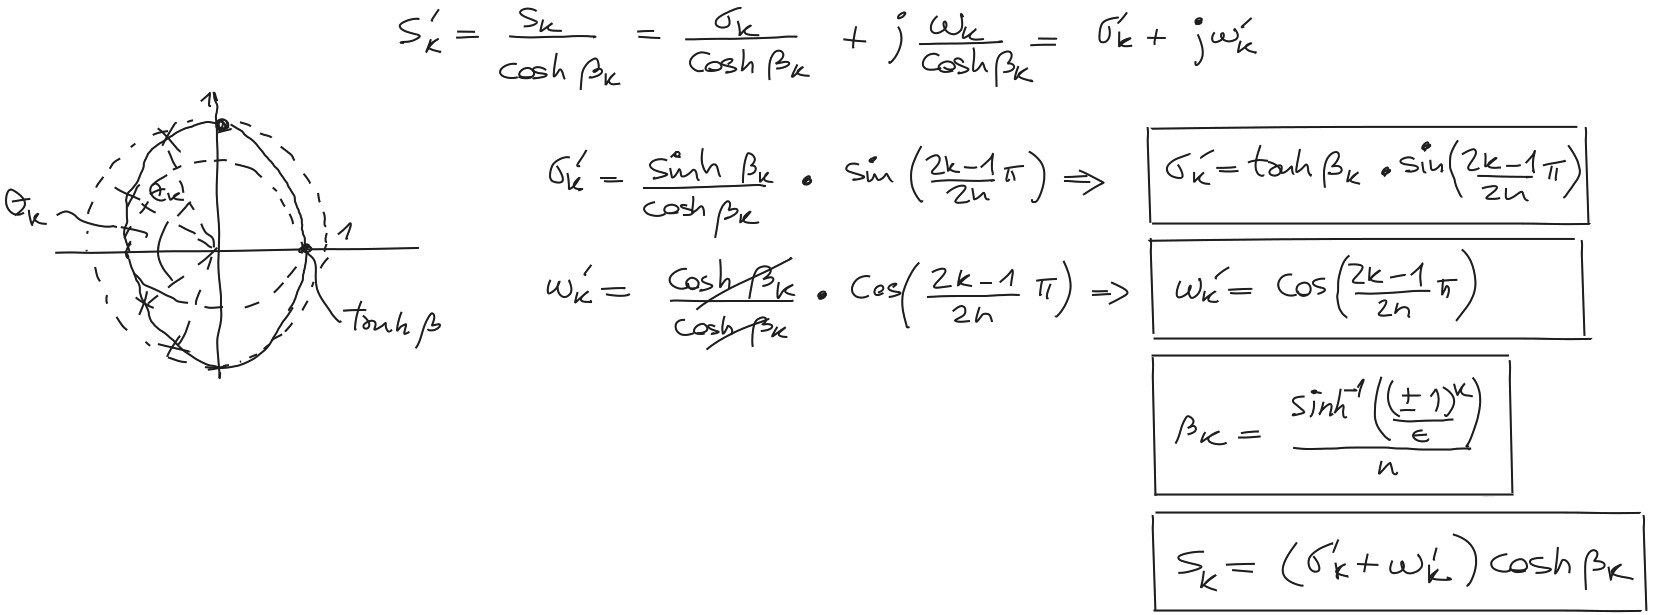 S'k = Sk / cosh βk = σk / cosh βk + j ωk / cosh βk = σ'k + jω'k
1
θk
θk
1
tanh β
σ'k = sinh βk / cosh βk • sin (2k-1 / 2n π) => σ'k = tanh βk • sin(2k-1 / 2n π)
ω'k = cosh βk / cosh βk • cos(2k-1 / 2n π) => ω'k = cos(2k-1 / 2n π)
βk = sinh⁻¹((±1)^k / ε) / n
Sk = (σ'k + ω'k) cosh βk